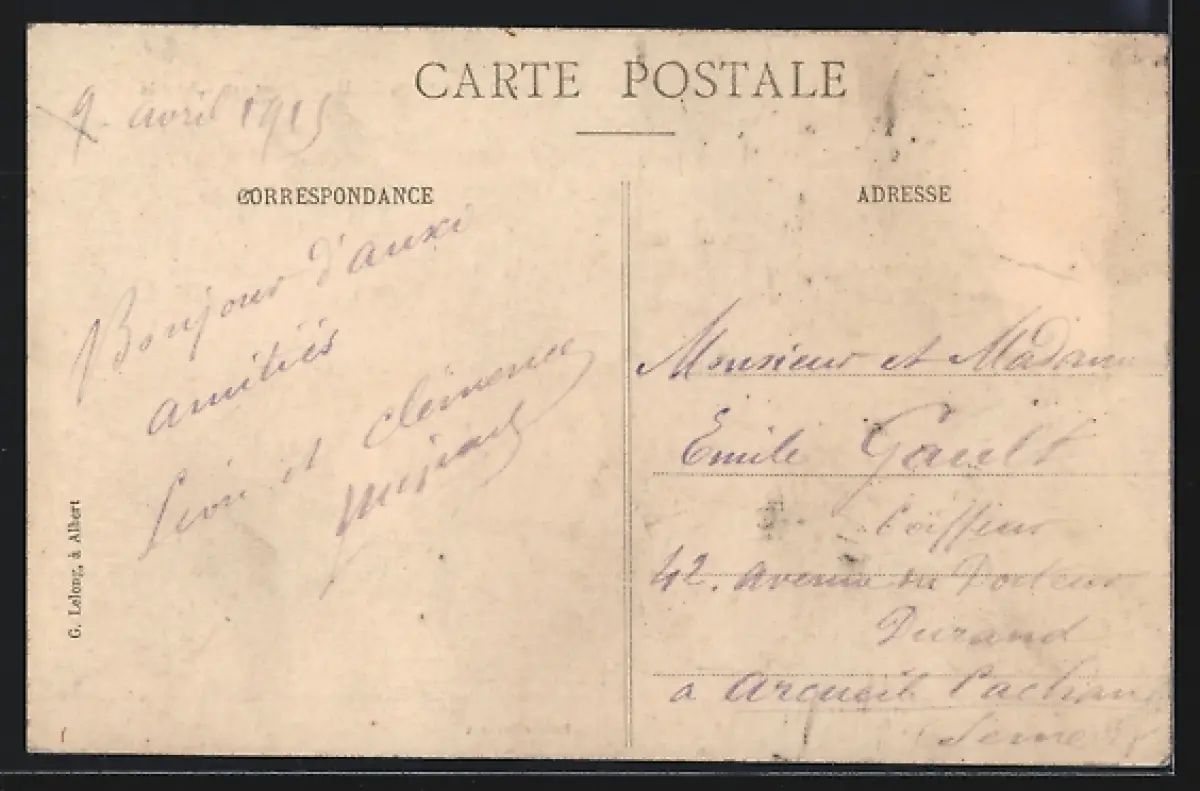 CARTE POSTALE
9. avril 1915
CORRESPONDANCE
Bonjour d'auxi
amitiés
Léon et Clémence
ADRESSE
Monsieur et Madame
Emile Gault
Coiffeur
42. Avenue du Docteur
Durand
a Arcueil Cachan
Seine
G. Lelong, à Albert